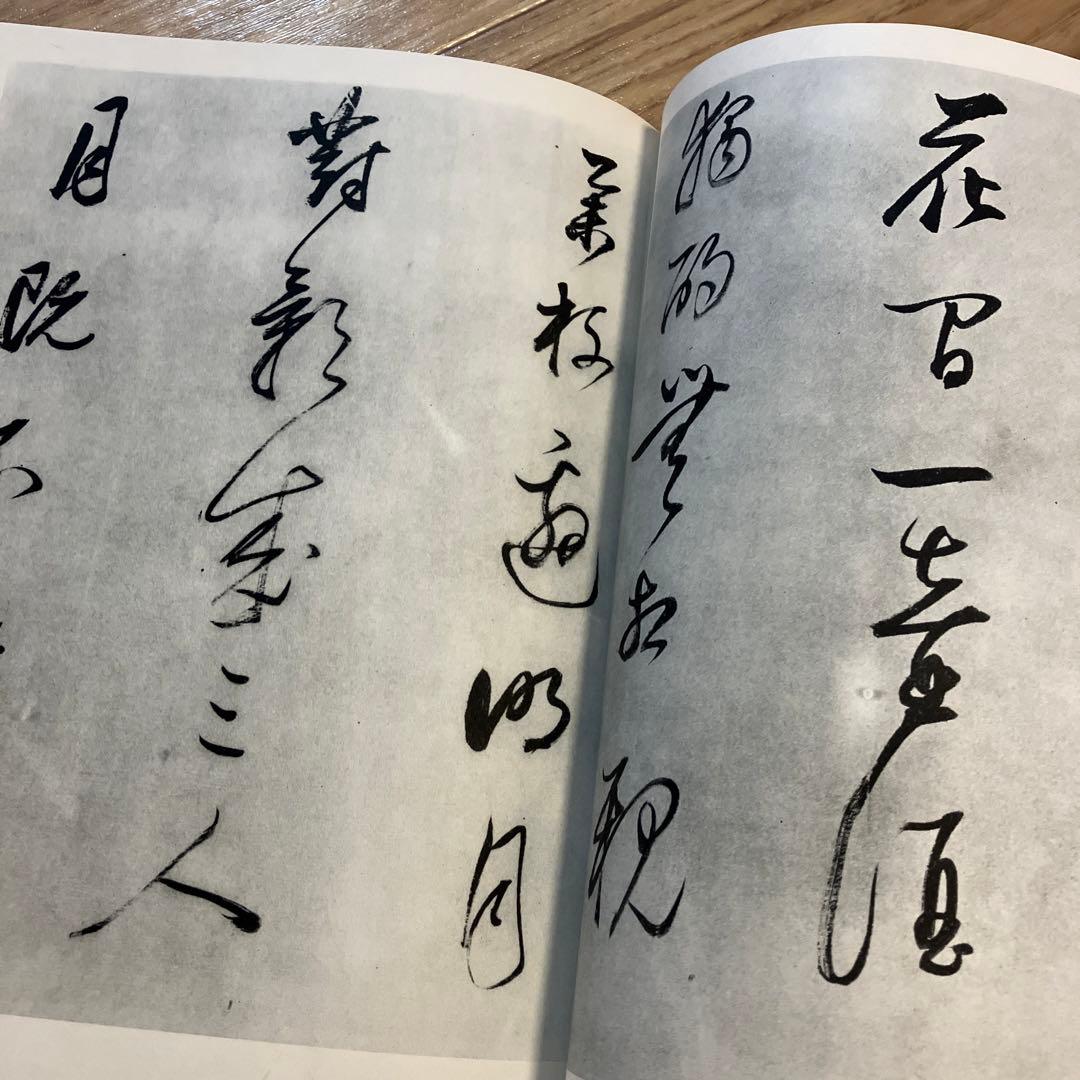 花間一壺酒
獨酌無相親
舉杯邀明月
對影成三人
月既不